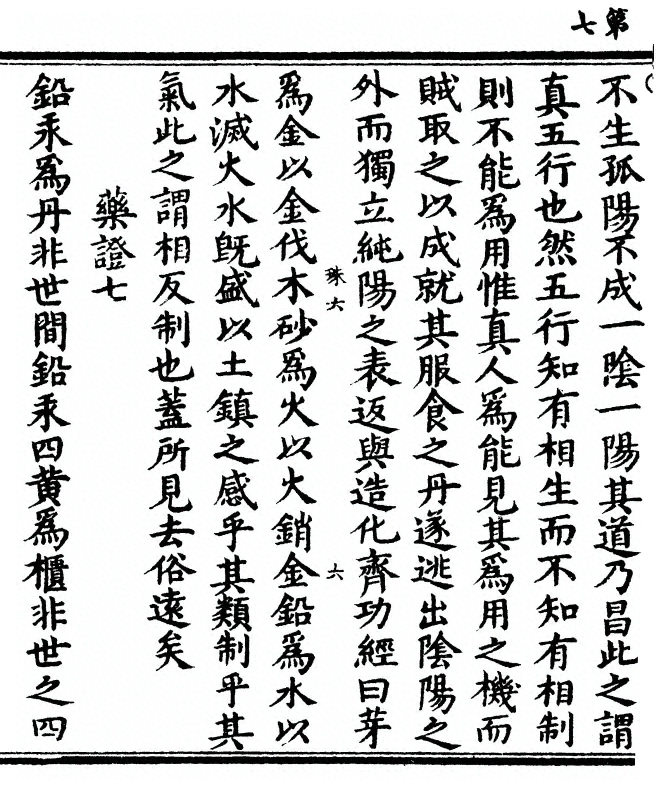 第七
不生孤陽不成一陰一陽其道乃昌此之謂
真五行也然五行知有相生而不知有相制
則不能爲用惟真人爲能見其爲用之機而
賊取之以成就其服食之丹遂逃出陰陽之
外而獨立純陽之表返與造化齊功經曰芽
珠六 六
爲金以金伐木砂爲火以火銷金鉛爲水以
水滅火水旣盛以土鎮之感乎其類制乎其
氣此之謂相反制也蓋所見去俗遠矣
藥證七
鉛汞爲丹非世間鉛汞四黄爲櫃非世之四